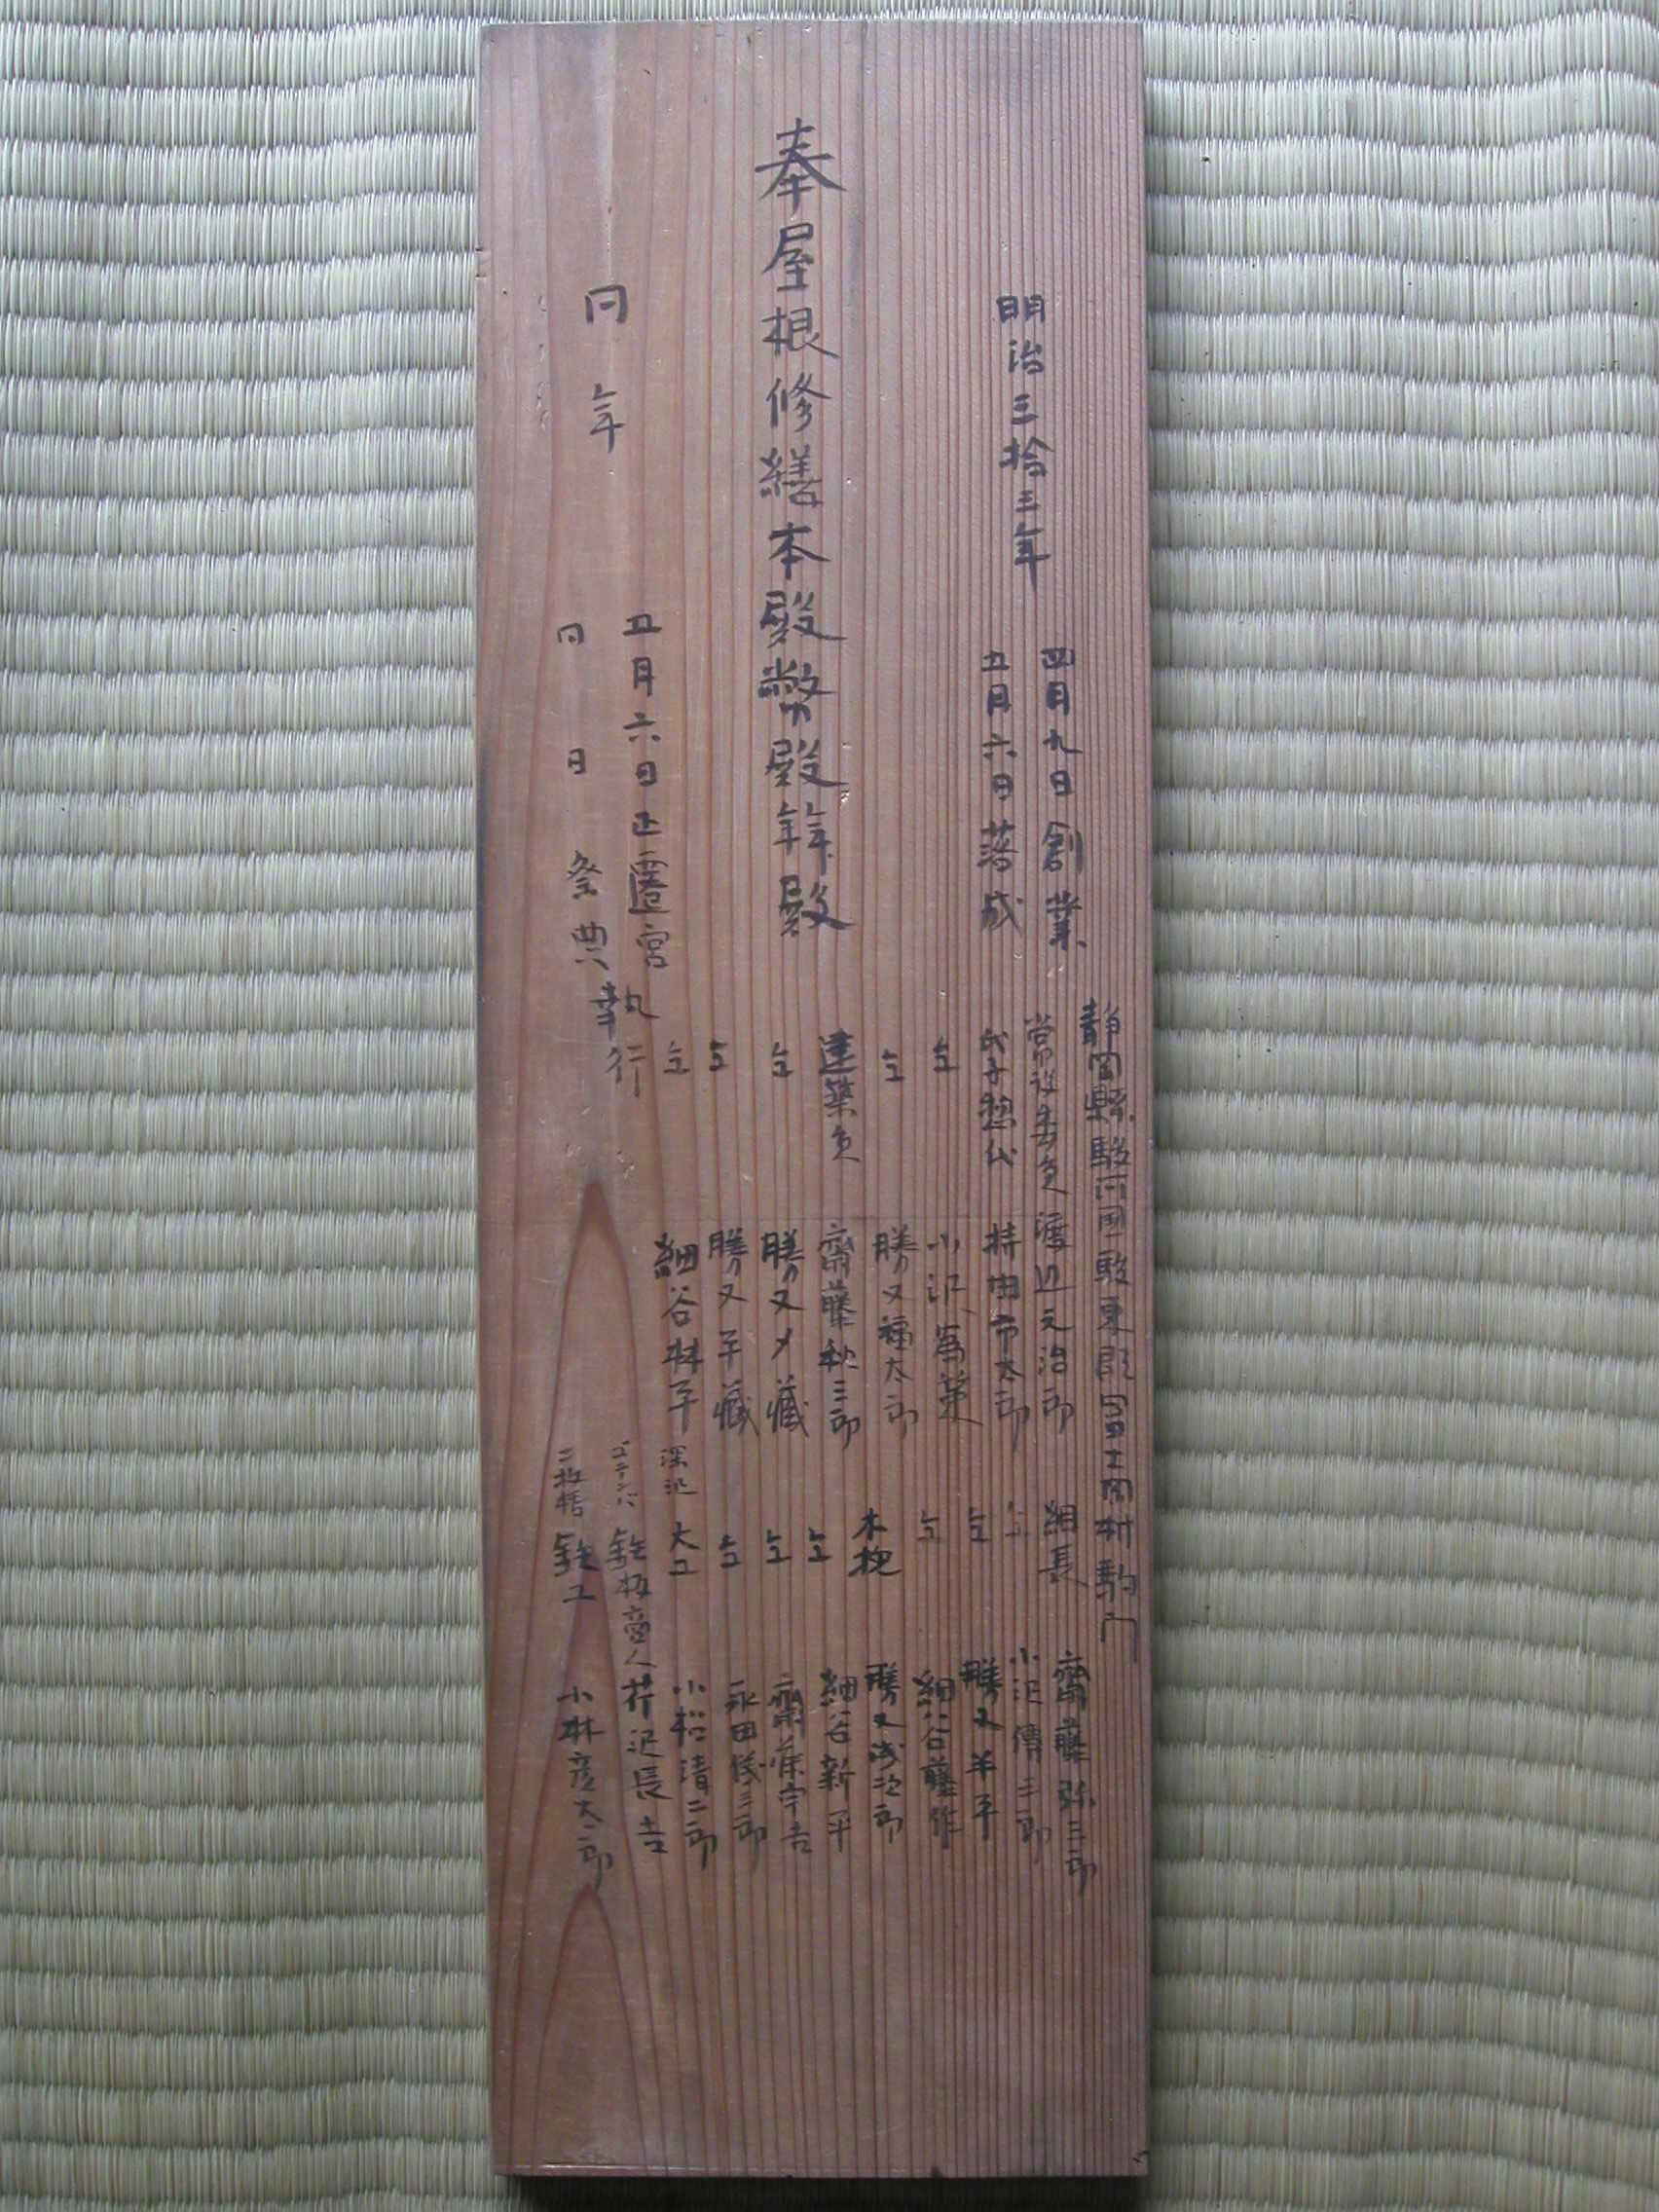 明治三拾三年
四月九日創業
五月六日落成
奉屋根修繕本殿幣殿拜殿
同年
五月六日正遷宮
同日祭典
執行
静岡縣駿河国駿東郡冨士岡村駒門
常設委員 渡辺元治郎
氏子惣代 持田市太郎
仝 小沢為策
仝 勝又福太郎
建築員 齋藤秋三郎
仝 勝又夕藏
仝 勝又平藏
仝 細谷林平
組長 齋藤弥三郎
仝 小沢傳三郎
仝 勝又半平
仝 細谷藤作
木挽 勝又浅次郎
仝 細谷新平
仝 齋藤宇吉
仝 永田儀三郎
深沢 大工 小松清二郎
ゴテンバ 板商人 芹沢長吉
二枚橋 工 小林彦太郎